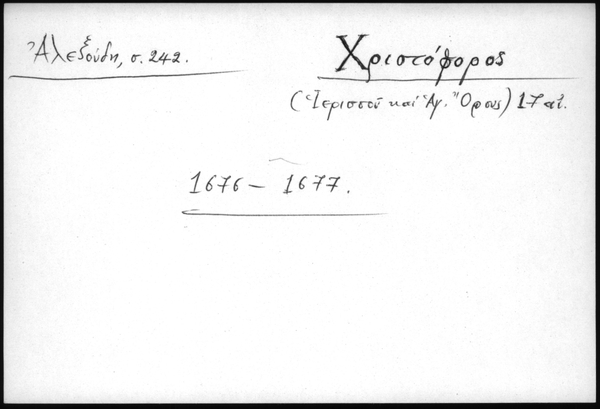 Ἀλεξούδη, σ. 242.
Χριστόφορος
(Ἱερισσοῦ καὶ Ἁγ. Ὄρους) 17 αἰ.
1676 – 1677.